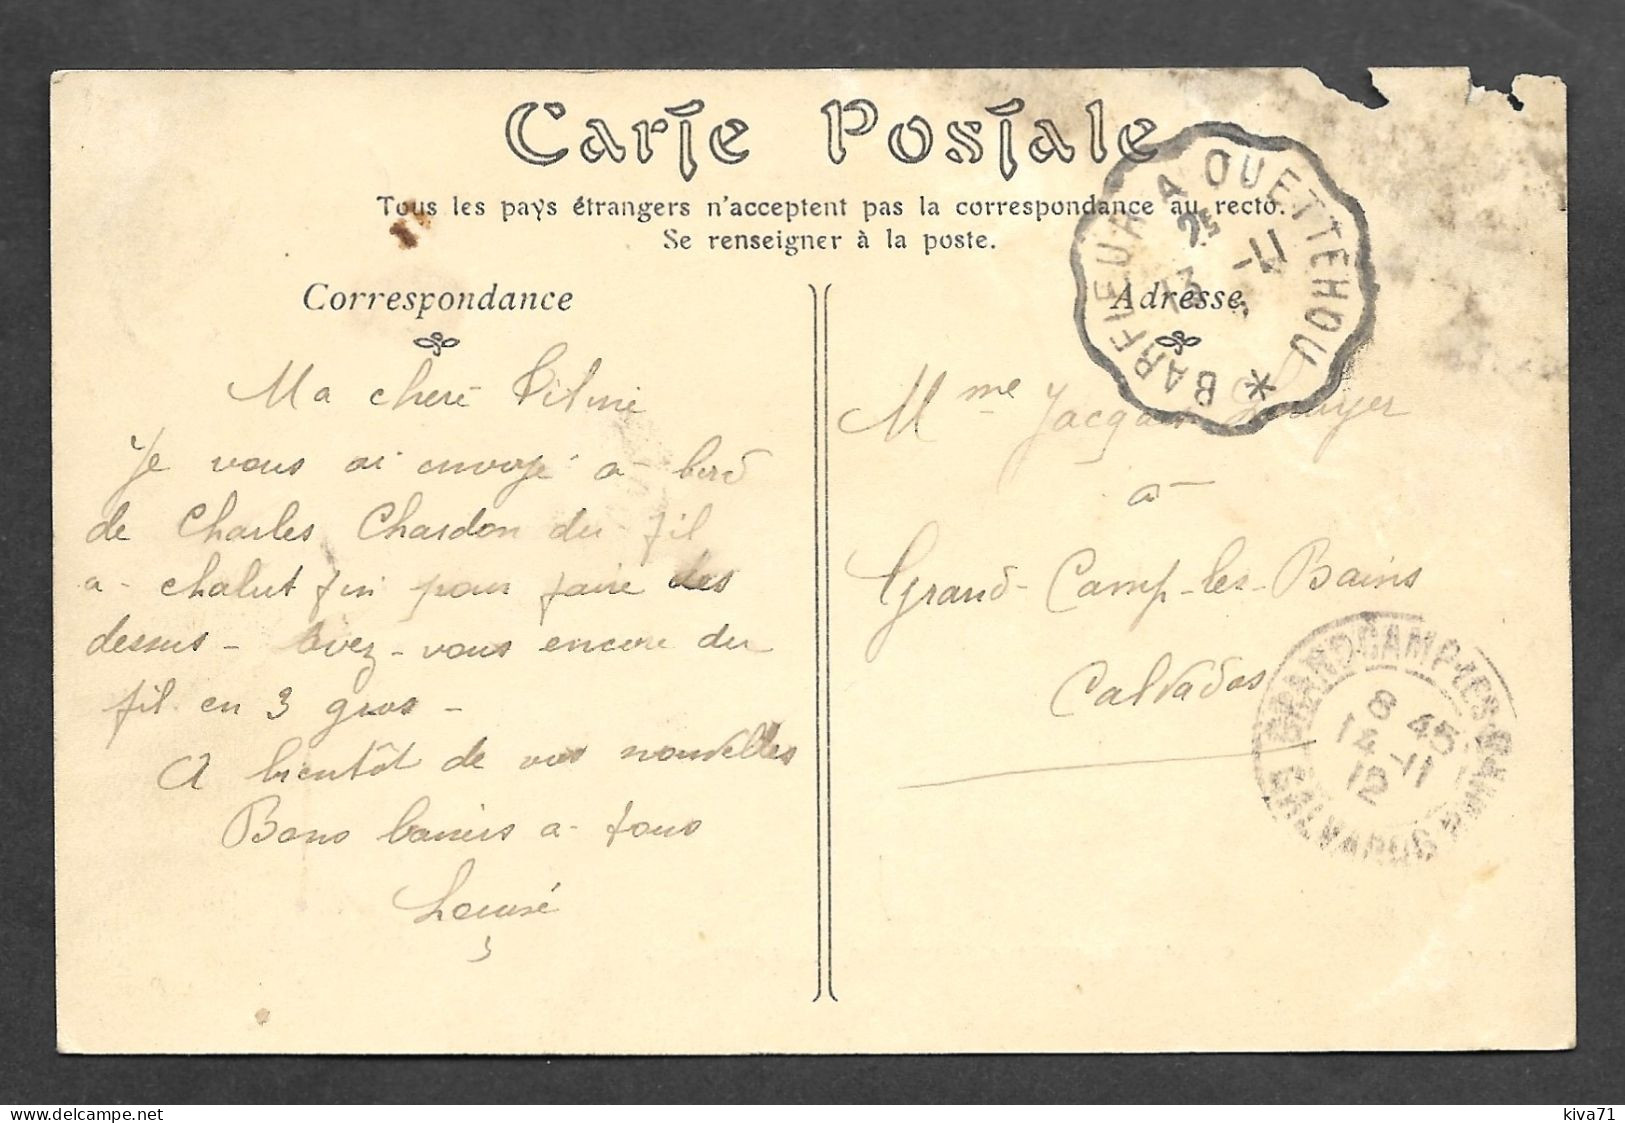 Carte Postale
Tous les pays étrangers n'acceptent pas la correspondance au recto.
Se renseigner à la poste.
Correspondance
Ma chere
Je vous ai envoyé a bord
de Charles Chardon du fil
a chalut fin pour faire des
dessus - Avez-vous encore du
fil en 3 gros -
A bientôt de vos nouvelles
Bons baisers a tous
Louise
Adresse
Mme Jacques
a
Grand-Camp-les-Bains
Calvados
BARFLEUR A QUETTEHOU *
25
13 -11
GRANDCAMP-LES-BAINS
8 45
14 -11
12
CALVADOS
delcampe.net
kiva71